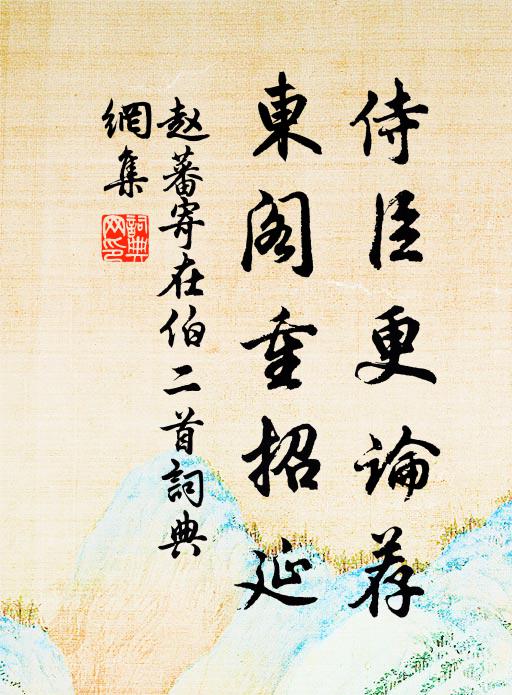 侍臣更論荐
東阁重招延
赵蕃寄在伯二首詞典
網集
詞典网印